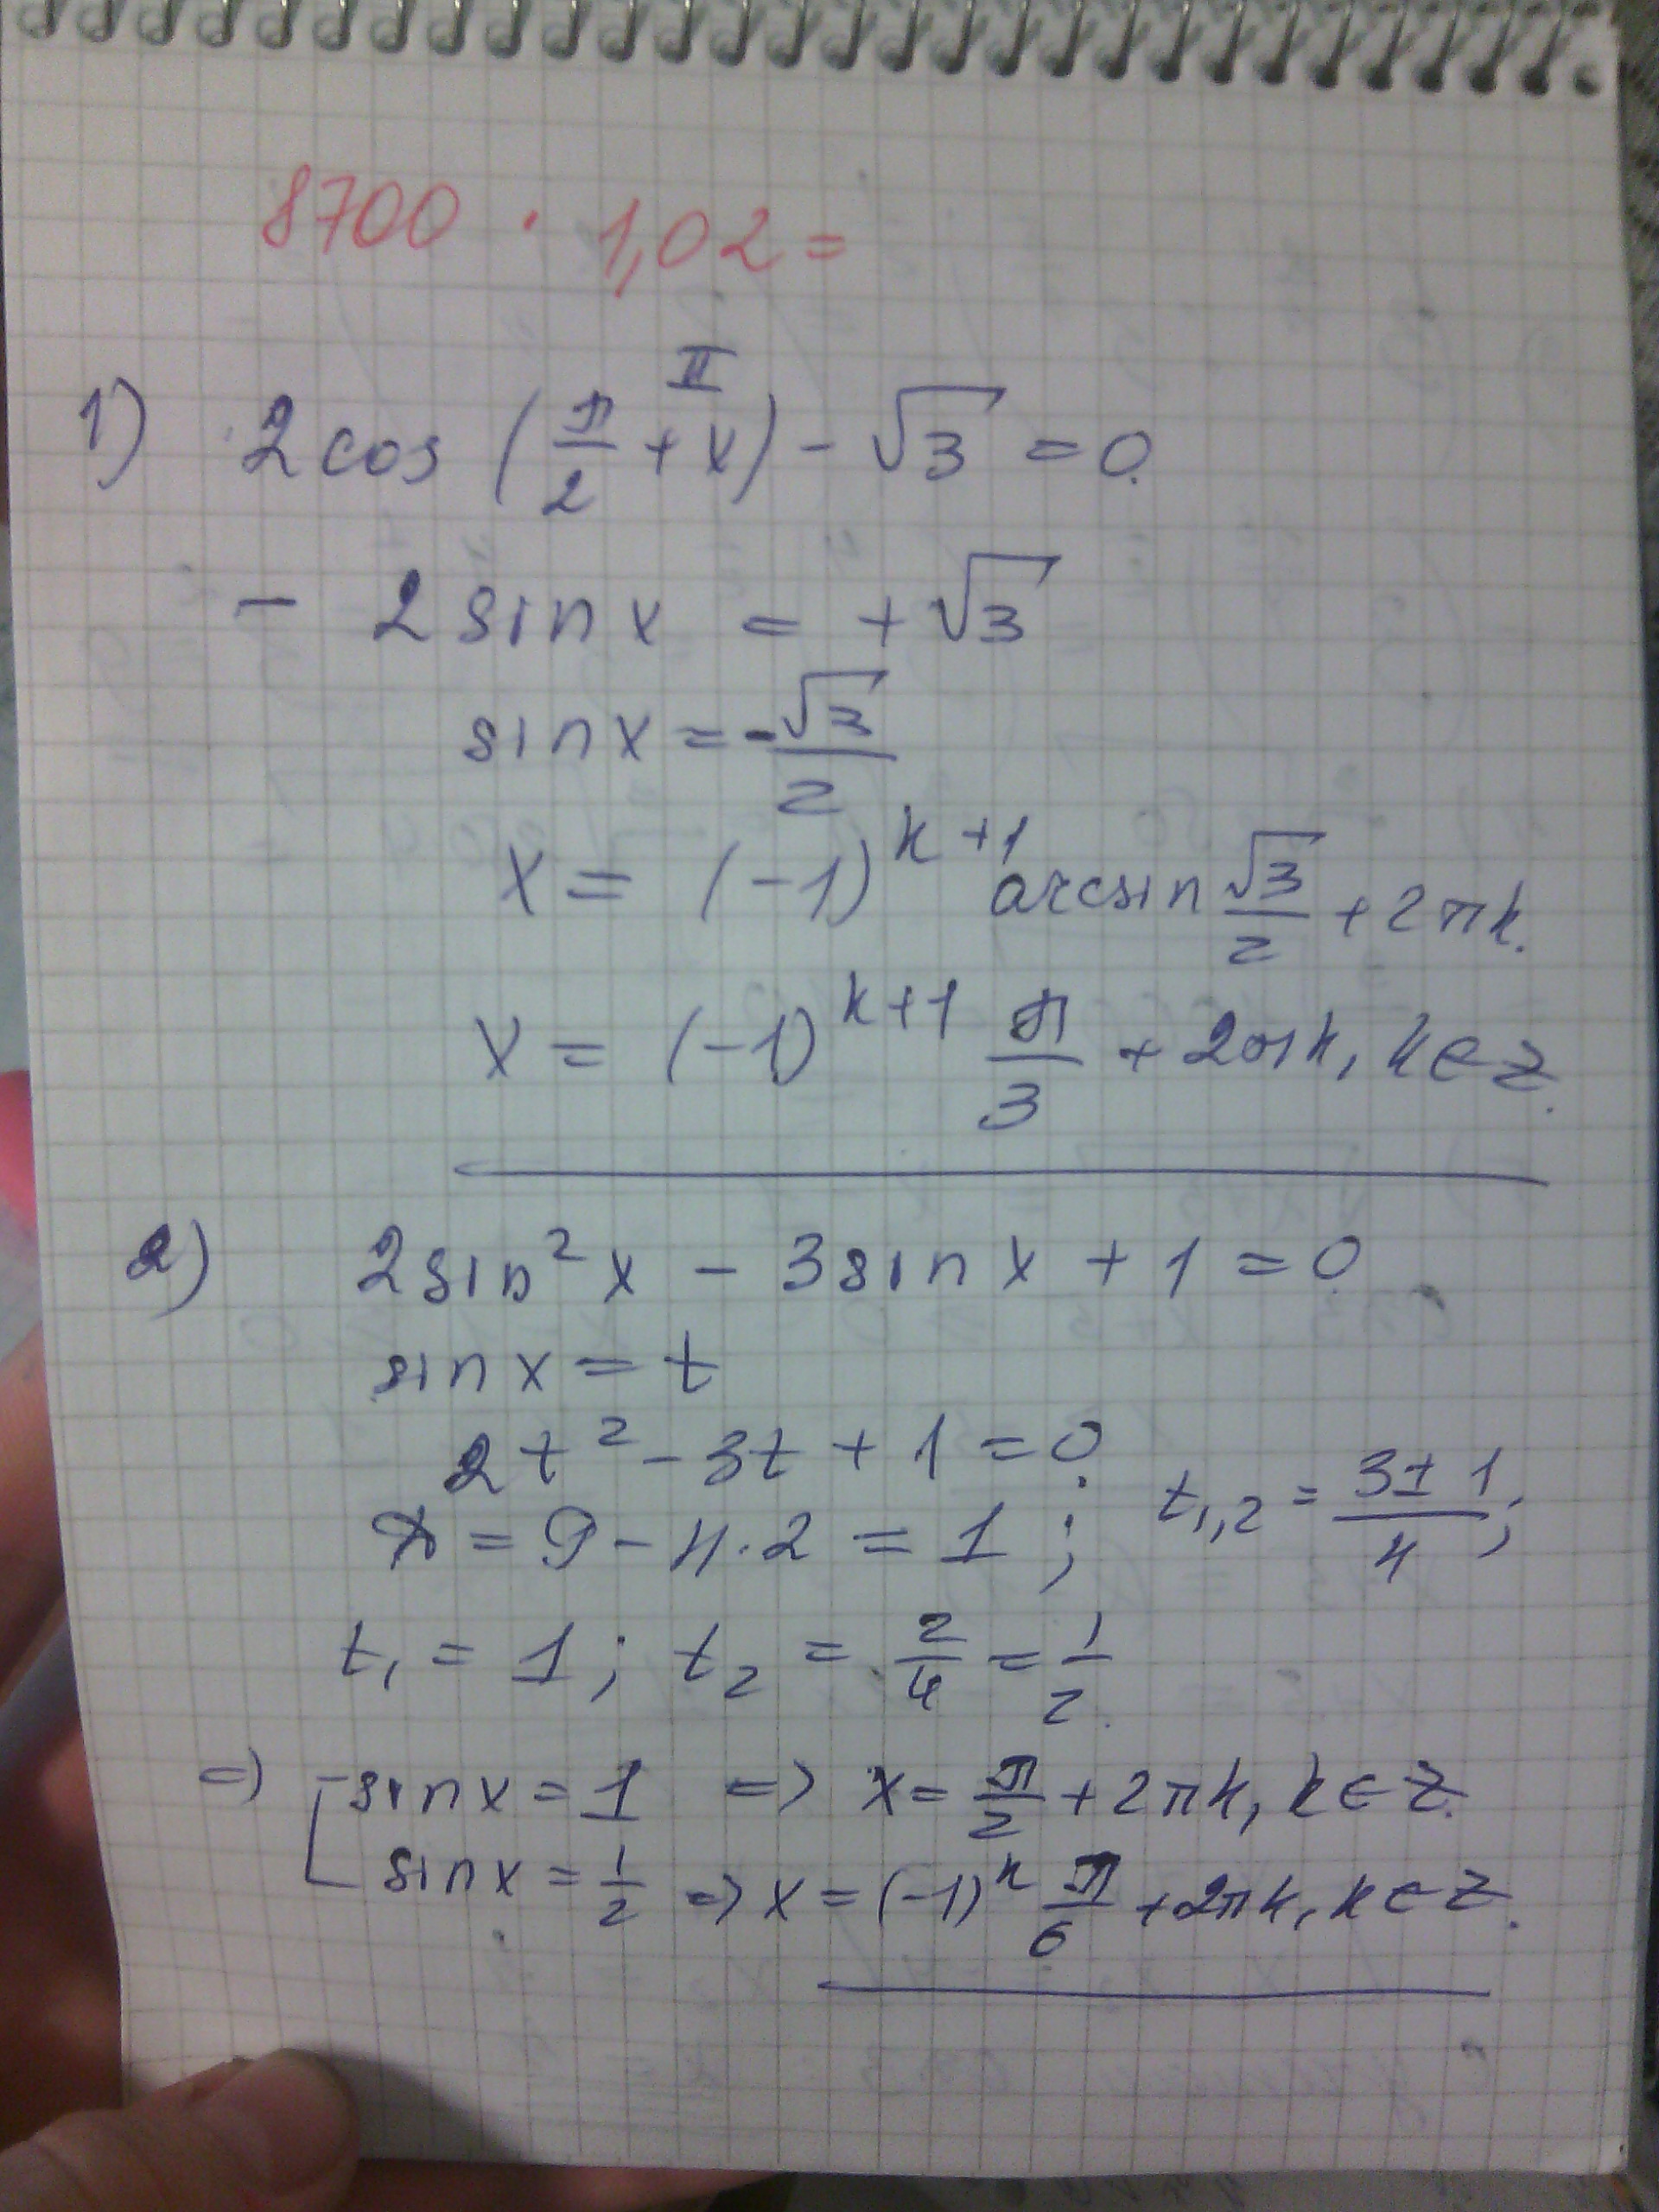 8700 · 1,02 =
II
1) 2 cos (π/2 + x) - √3 = 0.
- 2 sin x = + √3
sin x = -√3/2
x = (-1)^(k+1) arcsin √3/2 + 2πk.
x = (-1)^(k+1) π/3 + 2πk, k∈Z.
2) 2sin² x - 3sin x + 1 = 0
sin x = t
2t² - 3t + 1 = 0;
= 9 - 4·2 = 1 ; t₁,₂ = (3±1)/4;
t₁ = 1; t₂ = 2/4 = 1/2.
=> [ sin x = 1 => x = π/2 + 2πk, k∈Z.
sin x = 1/2 => x = (-1)^k π/6 + 2πk, k∈Z.